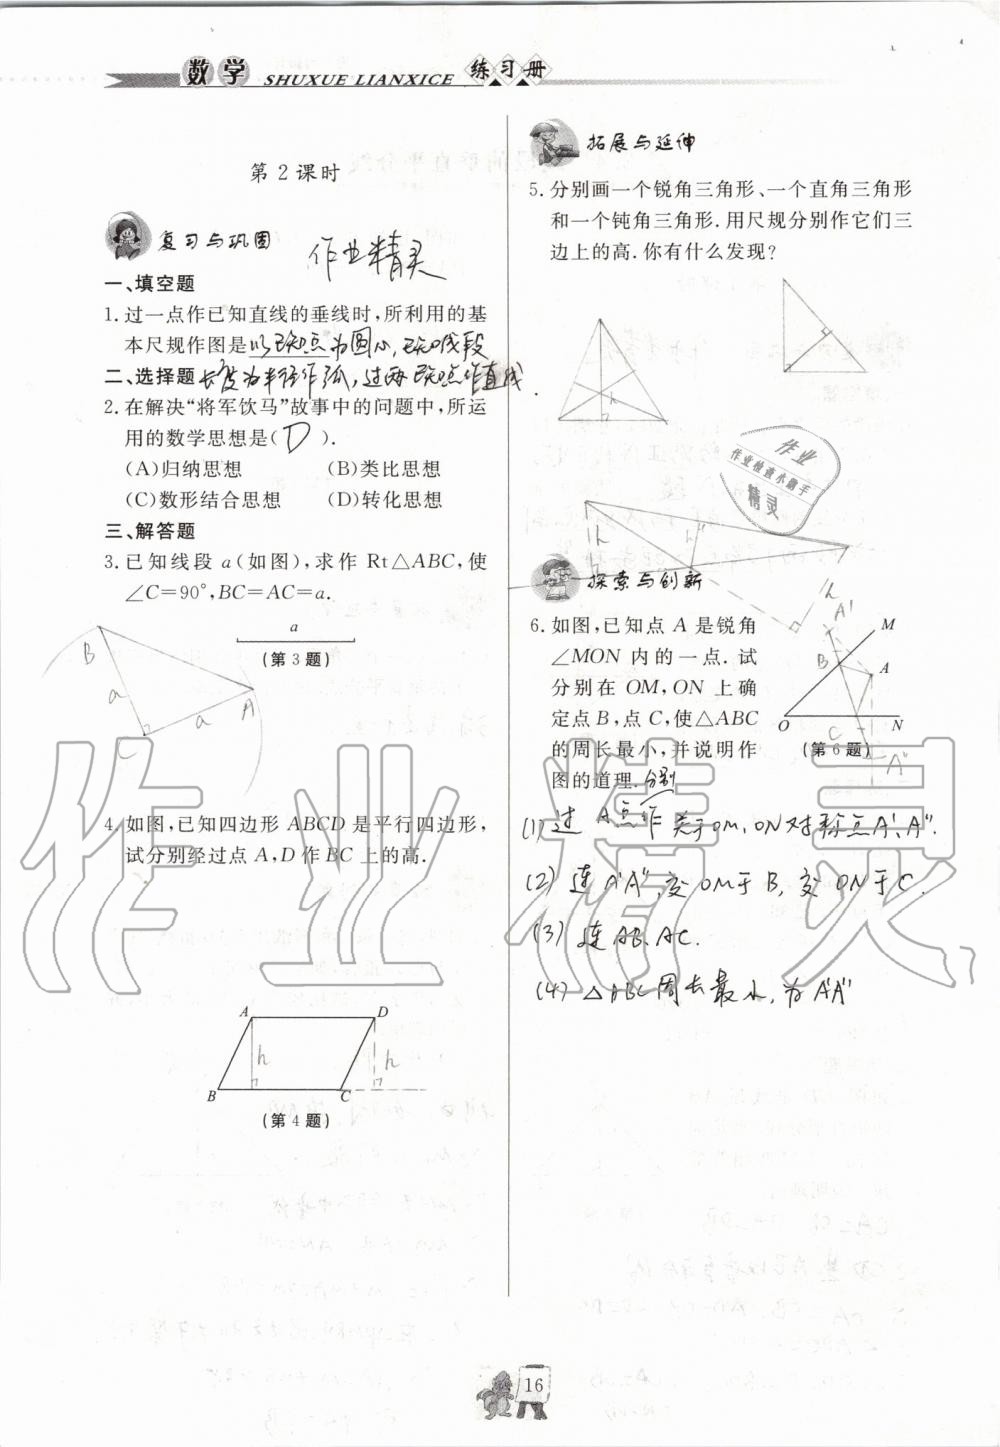 数学
SHUXUE LIANXICE
练习册
第2课时
复习与巩固
作业精灵
一、填空题
1.过一点作已知直线的垂线时,所利用的基
本尺规作图是以已知点为圆心,已知线段
二、选择题 长度为半径作弧,过两已知点作直线
2.在解决“将军饮马”故事中的问题中,所运
用的数学思想是( D ).
(A)归纳思想 (B)类比思想
(C)数形结合思想 (D)转化思想
三、解答题
3.已知线段 a(如图),求作 Rt△ABC,使
∠C=90°,BC=AC=a.
a
(第3题)
B
a
C
a
A
4.如图,已知四边形 ABCD 是平行四边形,
试分别经过点 A,D 作 BC 上的高.
A
D
h
h
B
C
(第4题)
拓展与延伸
5.分别画一个锐角三角形、一个直角三角形
和一个钝角三角形.用尺规分别作它们三
边上的高.你有什么发现?
h
作业
作业检查小助手
精灵
h
h"
h
探索与创新
6.如图,已知点 A 是锐角
∠MON 内的一点.试
分别在 OM,ON 上确
定点 B,点 C,使△ABC
的周长最小,并说明作
图的道理.分别
A'
M
B
A
O
C
N
A"
(第6题)
(1)过A点作关于OM,ON对称点A'、A".
(2)连A'A",交OM于B,交ON于C.
(3)连AB、AC.
(4)△ABC周长最小,为A'A"
作业精灵
16